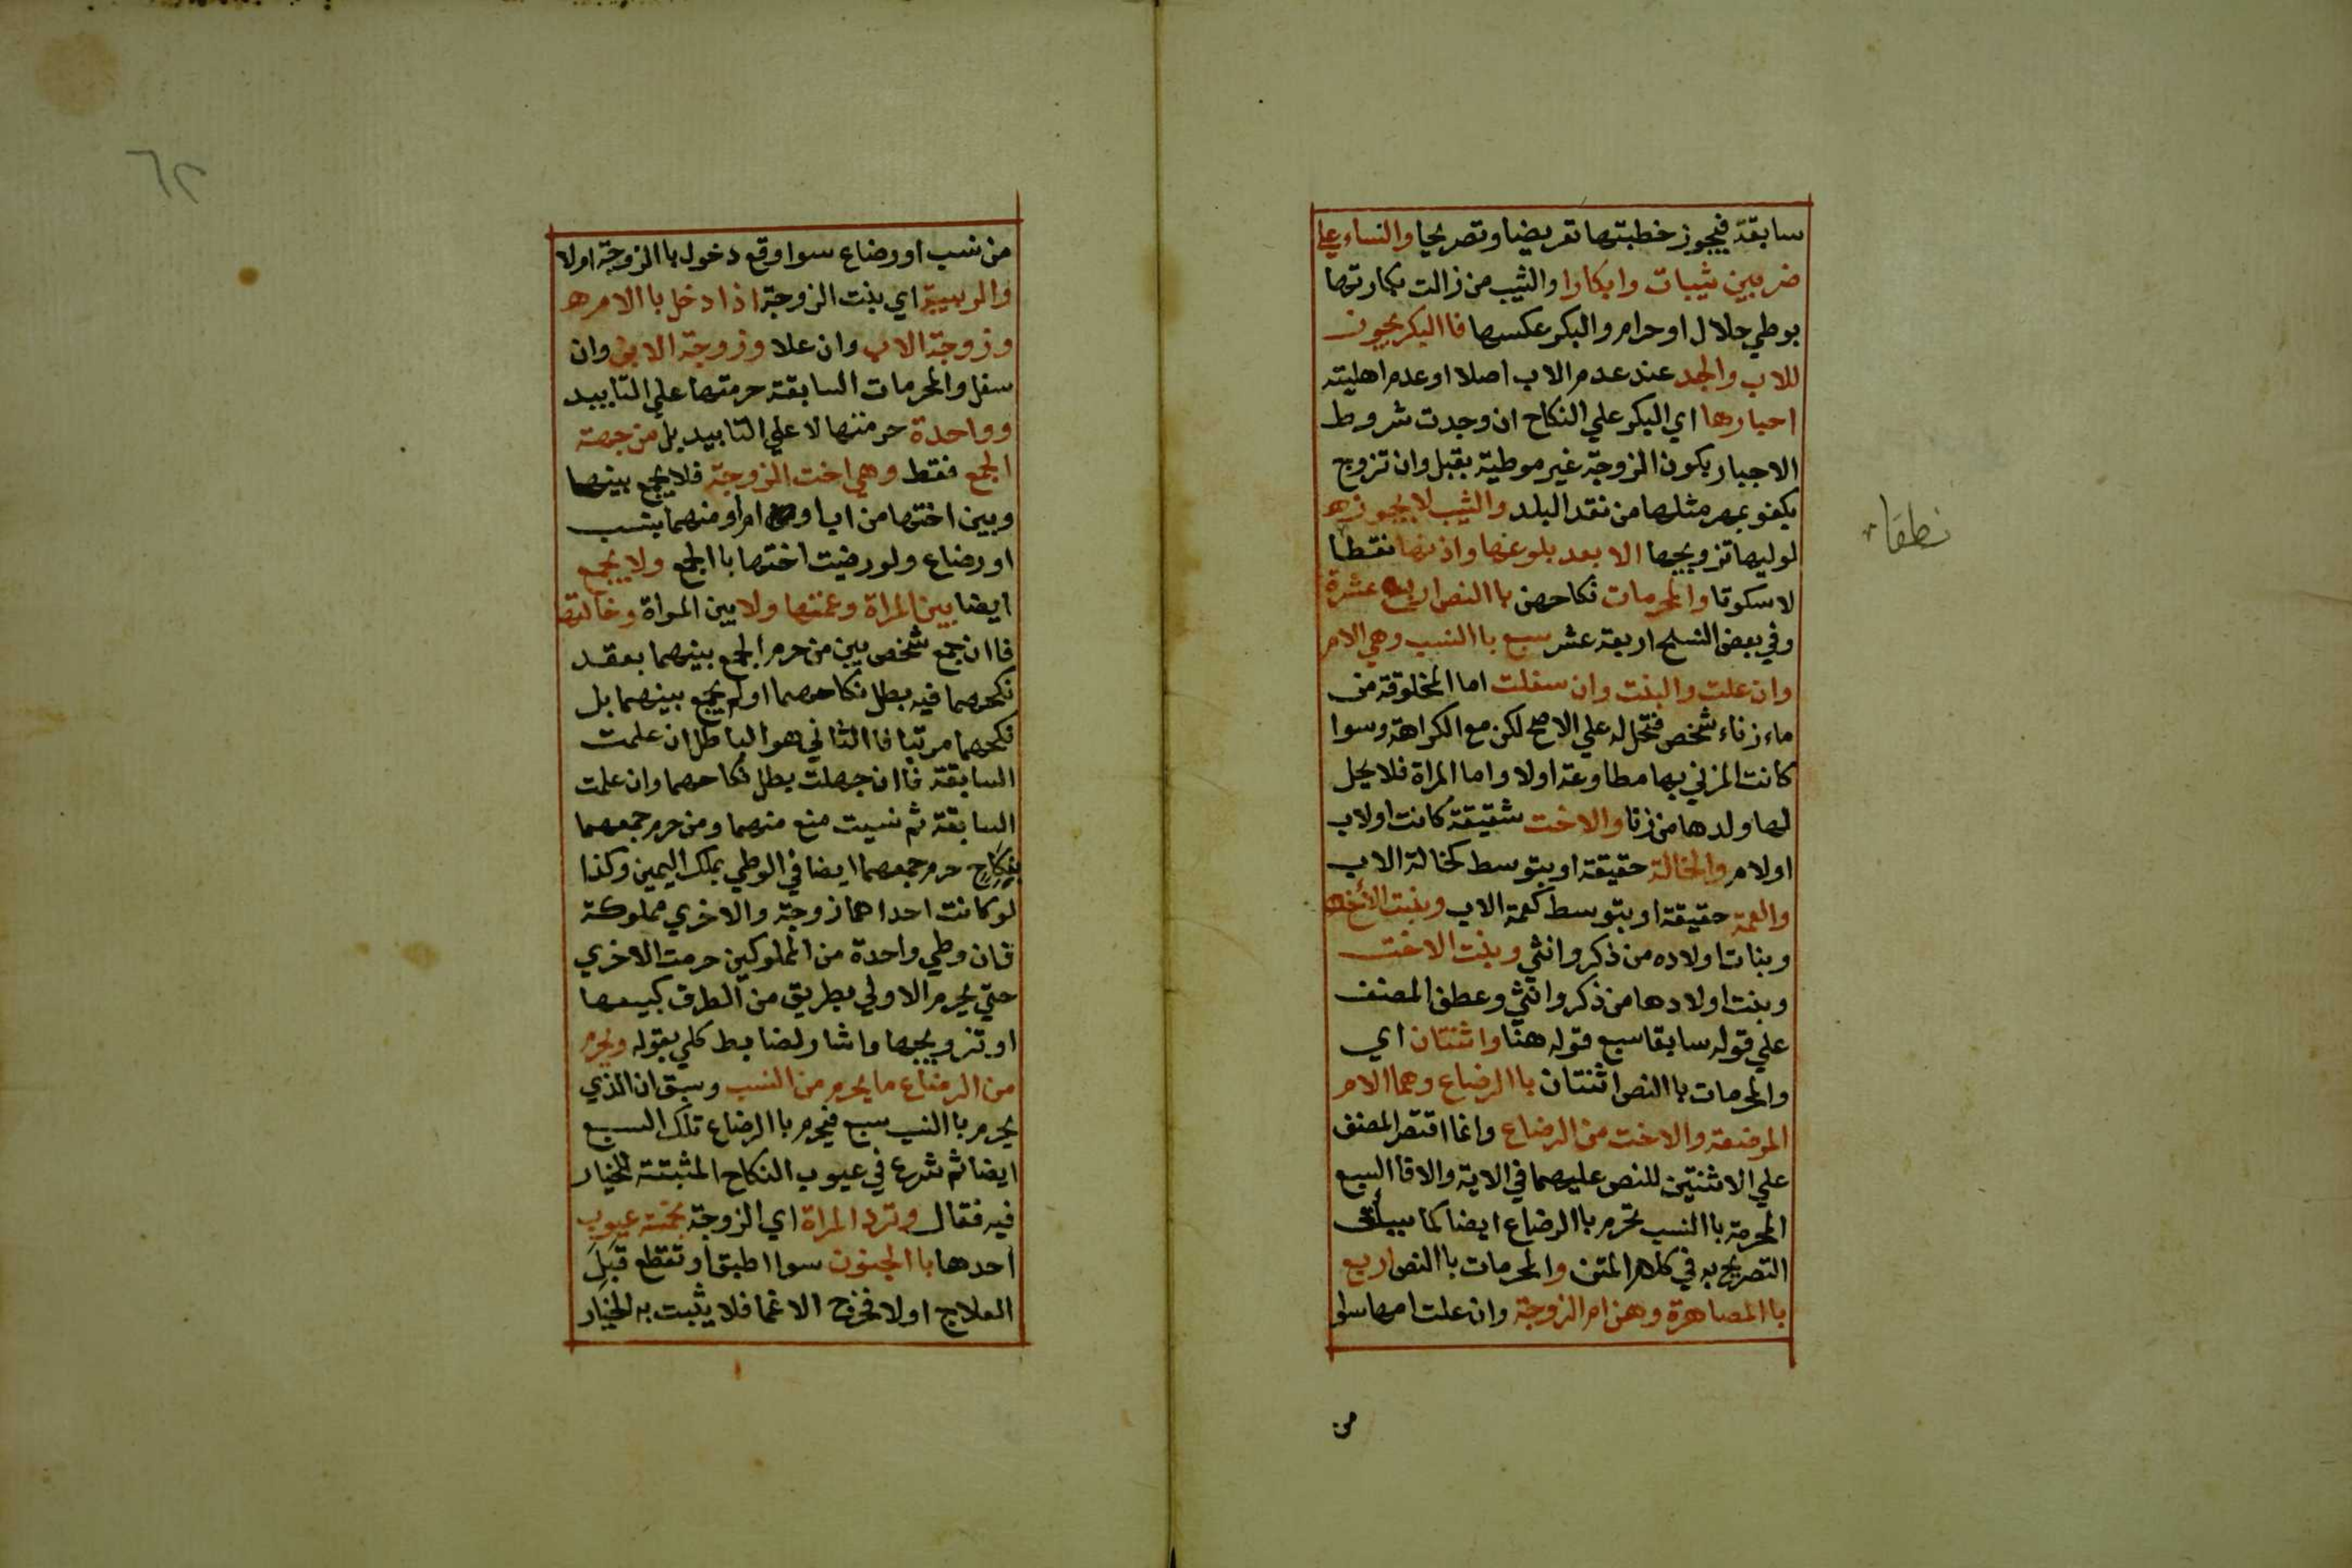 سابقة فيجوز خطبتها تعريضا وتصريحا والنساء علي
ضربين ثيبات وابكارا والثيب من زالت بكارتها
بوطي حلال او حرام والبكر عكسها فاالبكر يجوز
للاب والجد عند عدم الاب اصلا او عدم اهليته
اجبارها اي البكر علي النكاح ان وجدت شروط
الاجبار بكون الزوجة غير موطية بقبل وان تزوج
بكفو بمهر مثلها من نقد البلد والثيب لا يجوزه
لوليها تزويجها الا بعد بلوغها واذنها نقطا
نطقا
لا سكوتا والمحرمات نكاحهن باالنص اربع عشرة
وفي بعض النسخ اربعة عشر سبع باالنسب وهي الام
وان علت والبنت وان سفلت اما المخلوقة من
ماء زناء شخص فتحل له علي الاصح لكن مع الكراهة وسوا
كانت المزني بها مطاوعة اولا واما المراة فلا يحل
لها ولدها من زنا والاخت شقيقة كانت او لاب
او لام والخالة حقيقة او بتوسط كخالة الاب
والعمة حقيقة او بتوسط كعمة الاب وبنت الأخ
وبنات اولاده من ذكر وانثي وبنت الاخت
وبنت اولادها من ذكر وانثي وعطف المصنف
علي قوله سابقا سبع قوله هنا واثنتان اي
والمحرمات باالنص اثنتان باالرضاع وهما الام
المرضعة والاخت من الرضاع وانما اقتصر المصنف
علي الاثنتين للنص عليهما في الاية والا فاالسبع
المحرمة باالنسب تحرم باالرضاع ايضا كما سيأتي
التصريح به في كلام المتن والمحرمات باالنص اربع
باالمصاهرة وهن ام الزوجة وان علت امها سوا
من
٦٢
من نسب او رضاع سوا وقع دخول باالزوجة اولا
والربيبة اي بنت الزوجة اذا دخل باالام ره
وزوجة الاب وان علا وزوجة الابن وان
سفل والمحرمات السابقة حرمتها علي التابيد
وواحدة حرمتها لا علي التابيد بل من جهة
الجمع فقط وهي اخت الزوجة فلا يجمع بينها
وبين اختها من اب او ام او منهما بنسب
او رضاع ولو رضيت اختها باالجمع ولا يجمع
ايضا بين المراة وعمتها ولا بين المراة وخالتها
فاان جمع شخص بين من حرم الجمع بينهما بعقد
نكحهما فيه بطل نكاحهما او لم يجمع بينهما بل
نكحهما مرتبا فاالثاني هو الباطل ان علمت
السابقة فاان جهلت بطل نكاحهما وان علمت
السابقة ثم نسيت منع منهما ومن حرم جمعهما
بنكاح حرم جمعهما ايضا في الوطي بملك اليمين وكذا
لو كانت احداهما زوجة والاخري مملوكة
فان وطي واحدة من المملوكين حرمت الاخري
حتي يحرم الاولي بطريق من الطرق كبيعها
او تزويجها واشار لضابط كلي بقوله ويحرم
من الرضاع ما يحرم من النسب وسبق ان الذي
يحرم باالنسب سبع فيحرم باالرضاع تلك السبع
ايضا ثم شرع في عيوب النكاح المثبتة للخيار
فيه فقال وترد المراة اي الزوجة بخمسة عيوب
احدها باالجنون سوا اطبق او تقطع قبل
العلاج اولا فخرج الاغما فلا يثبت به الخيار